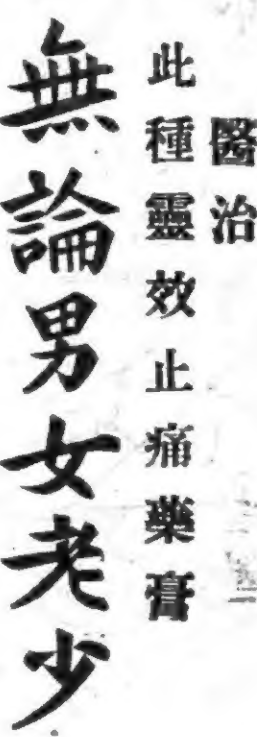 醫治
此種靈效止痛藥膏
無論男女老少